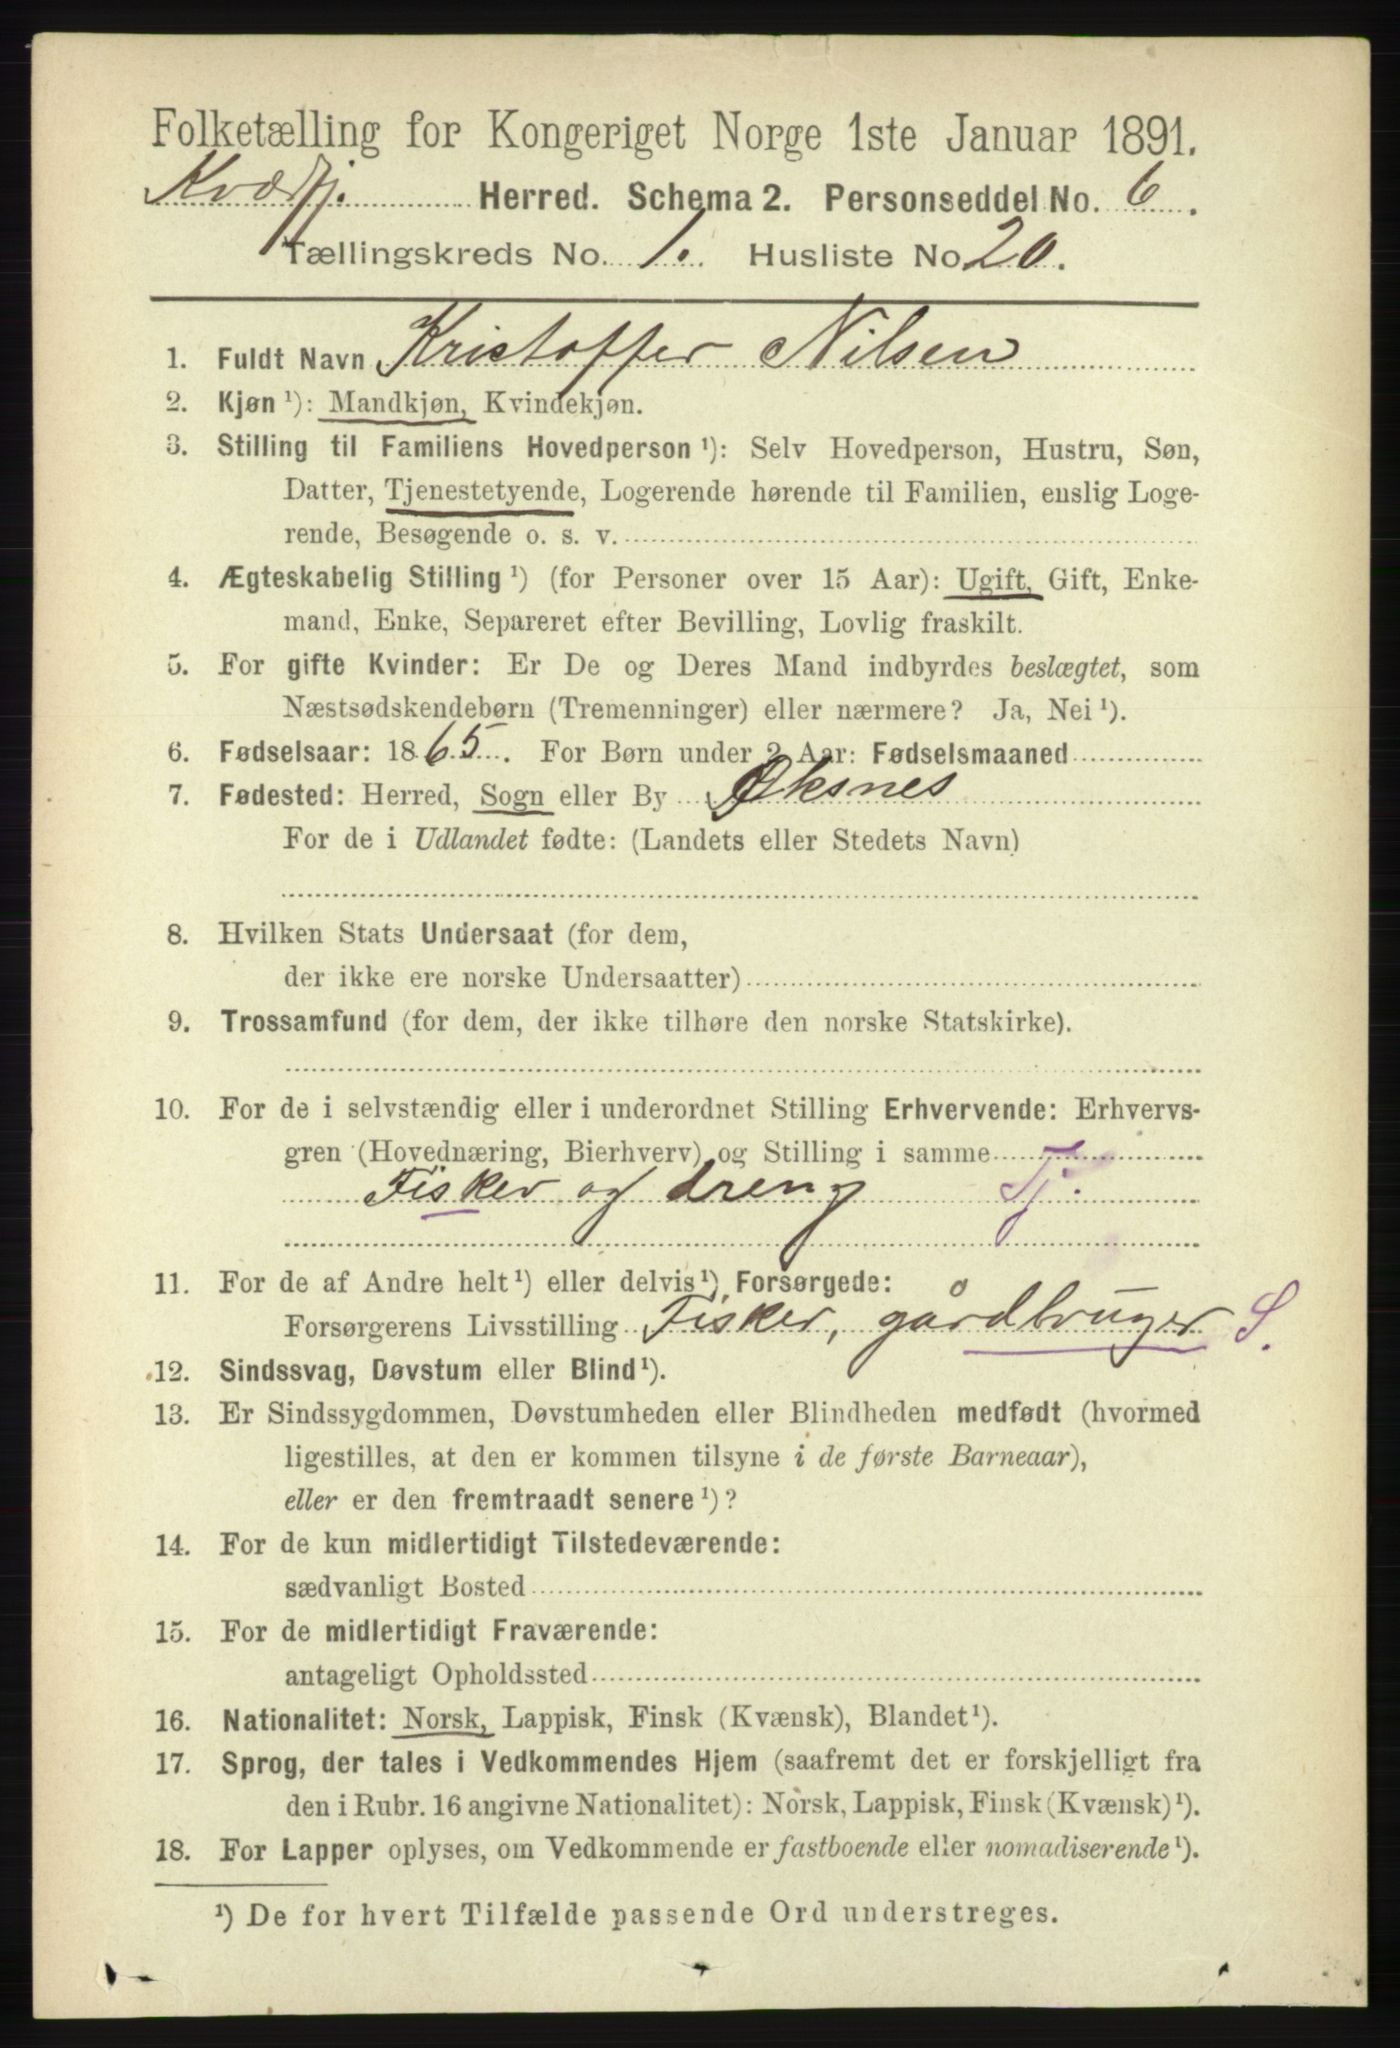 Folketælling for Kongeriget Norge 1ste Januar 1891.
Kvæfj. Herred. Schema 2. Personseddel No. 6.
Tællingskreds No. 1. Husliste No. 20.
1. Fuldt Navn Kristoffer Nilsen
2. Kjøn ¹): Mandkjøn, Kvindekjøn.
3. Stilling til Familiens Hovedperson ¹): Selv Hovedperson, Hustru, Søn,
Datter, Tjenestetyende, Logerende hørende til Familien, enslig Loge-
rende, Besøgende o. s. v.
4. Ægteskabelig Stilling ¹) (for Personer over 15 Aar): Ugift, Gift, Enke-
mand, Enke, Separeret efter Bevilling, Lovlig fraskilt.
5. For gifte Kvinder: Er De og Deres Mand indbyrdes beslægtet, som
Næstsødskendebørn (Tremenninger) eller nærmere? Ja, Nei ¹).
6. Fødselsaar: 1865. For Børn under 2 Aar: Fødselsmaaned
7. Fødested: Herred, Sogn eller By Øksnes
For de i Udlandet fødte: (Landets eller Stedets Navn)
8. Hvilken Stats Undersaat (for dem,
der ikke ere norske Undersaatter)
9. Trossamfund (for dem, der ikke tilhøre den norske Statskirke).
10. For de i selvstændig eller i underordnet Stilling Erhvervende: Erhvervs-
gren (Hovednæring, Bierhverv) og Stilling i samme
Fisker og dreng Tj.
11. For de af Andre helt ¹) eller delvis ¹) Forsørgede:
Forsørgerens Livsstilling Fisker, gårdbruger S.
12. Sindssvag, Døvstum eller Blind ¹).
13. Er Sindssygdommen, Døvstumheden eller Blindheden medfødt (hvormed
ligestilles, at den er kommen tilsyne i de første Barneaar),
eller er den fremtraadt senere ¹)?
14. For de kun midlertidigt Tilstedeværende:
sædvanligt Bosted
15. For de midlertidigt Fraværende:
antageligt Opholdssted
16. Nationalitet: Norsk, Lappisk, Finsk (Kvænsk), Blandet ¹).
17. Sprog, der tales i Vedkommendes Hjem (saafremt det er forskjelligt fra
den i Rubr. 16 angivne Nationalitet): Norsk, Lappisk, Finsk (Kvænsk) ¹).
18. For Lapper oplyses, om Vedkommende er fastboende eller nomadiserende ¹).
¹) De for hvert Tilfælde passende Ord understreges.